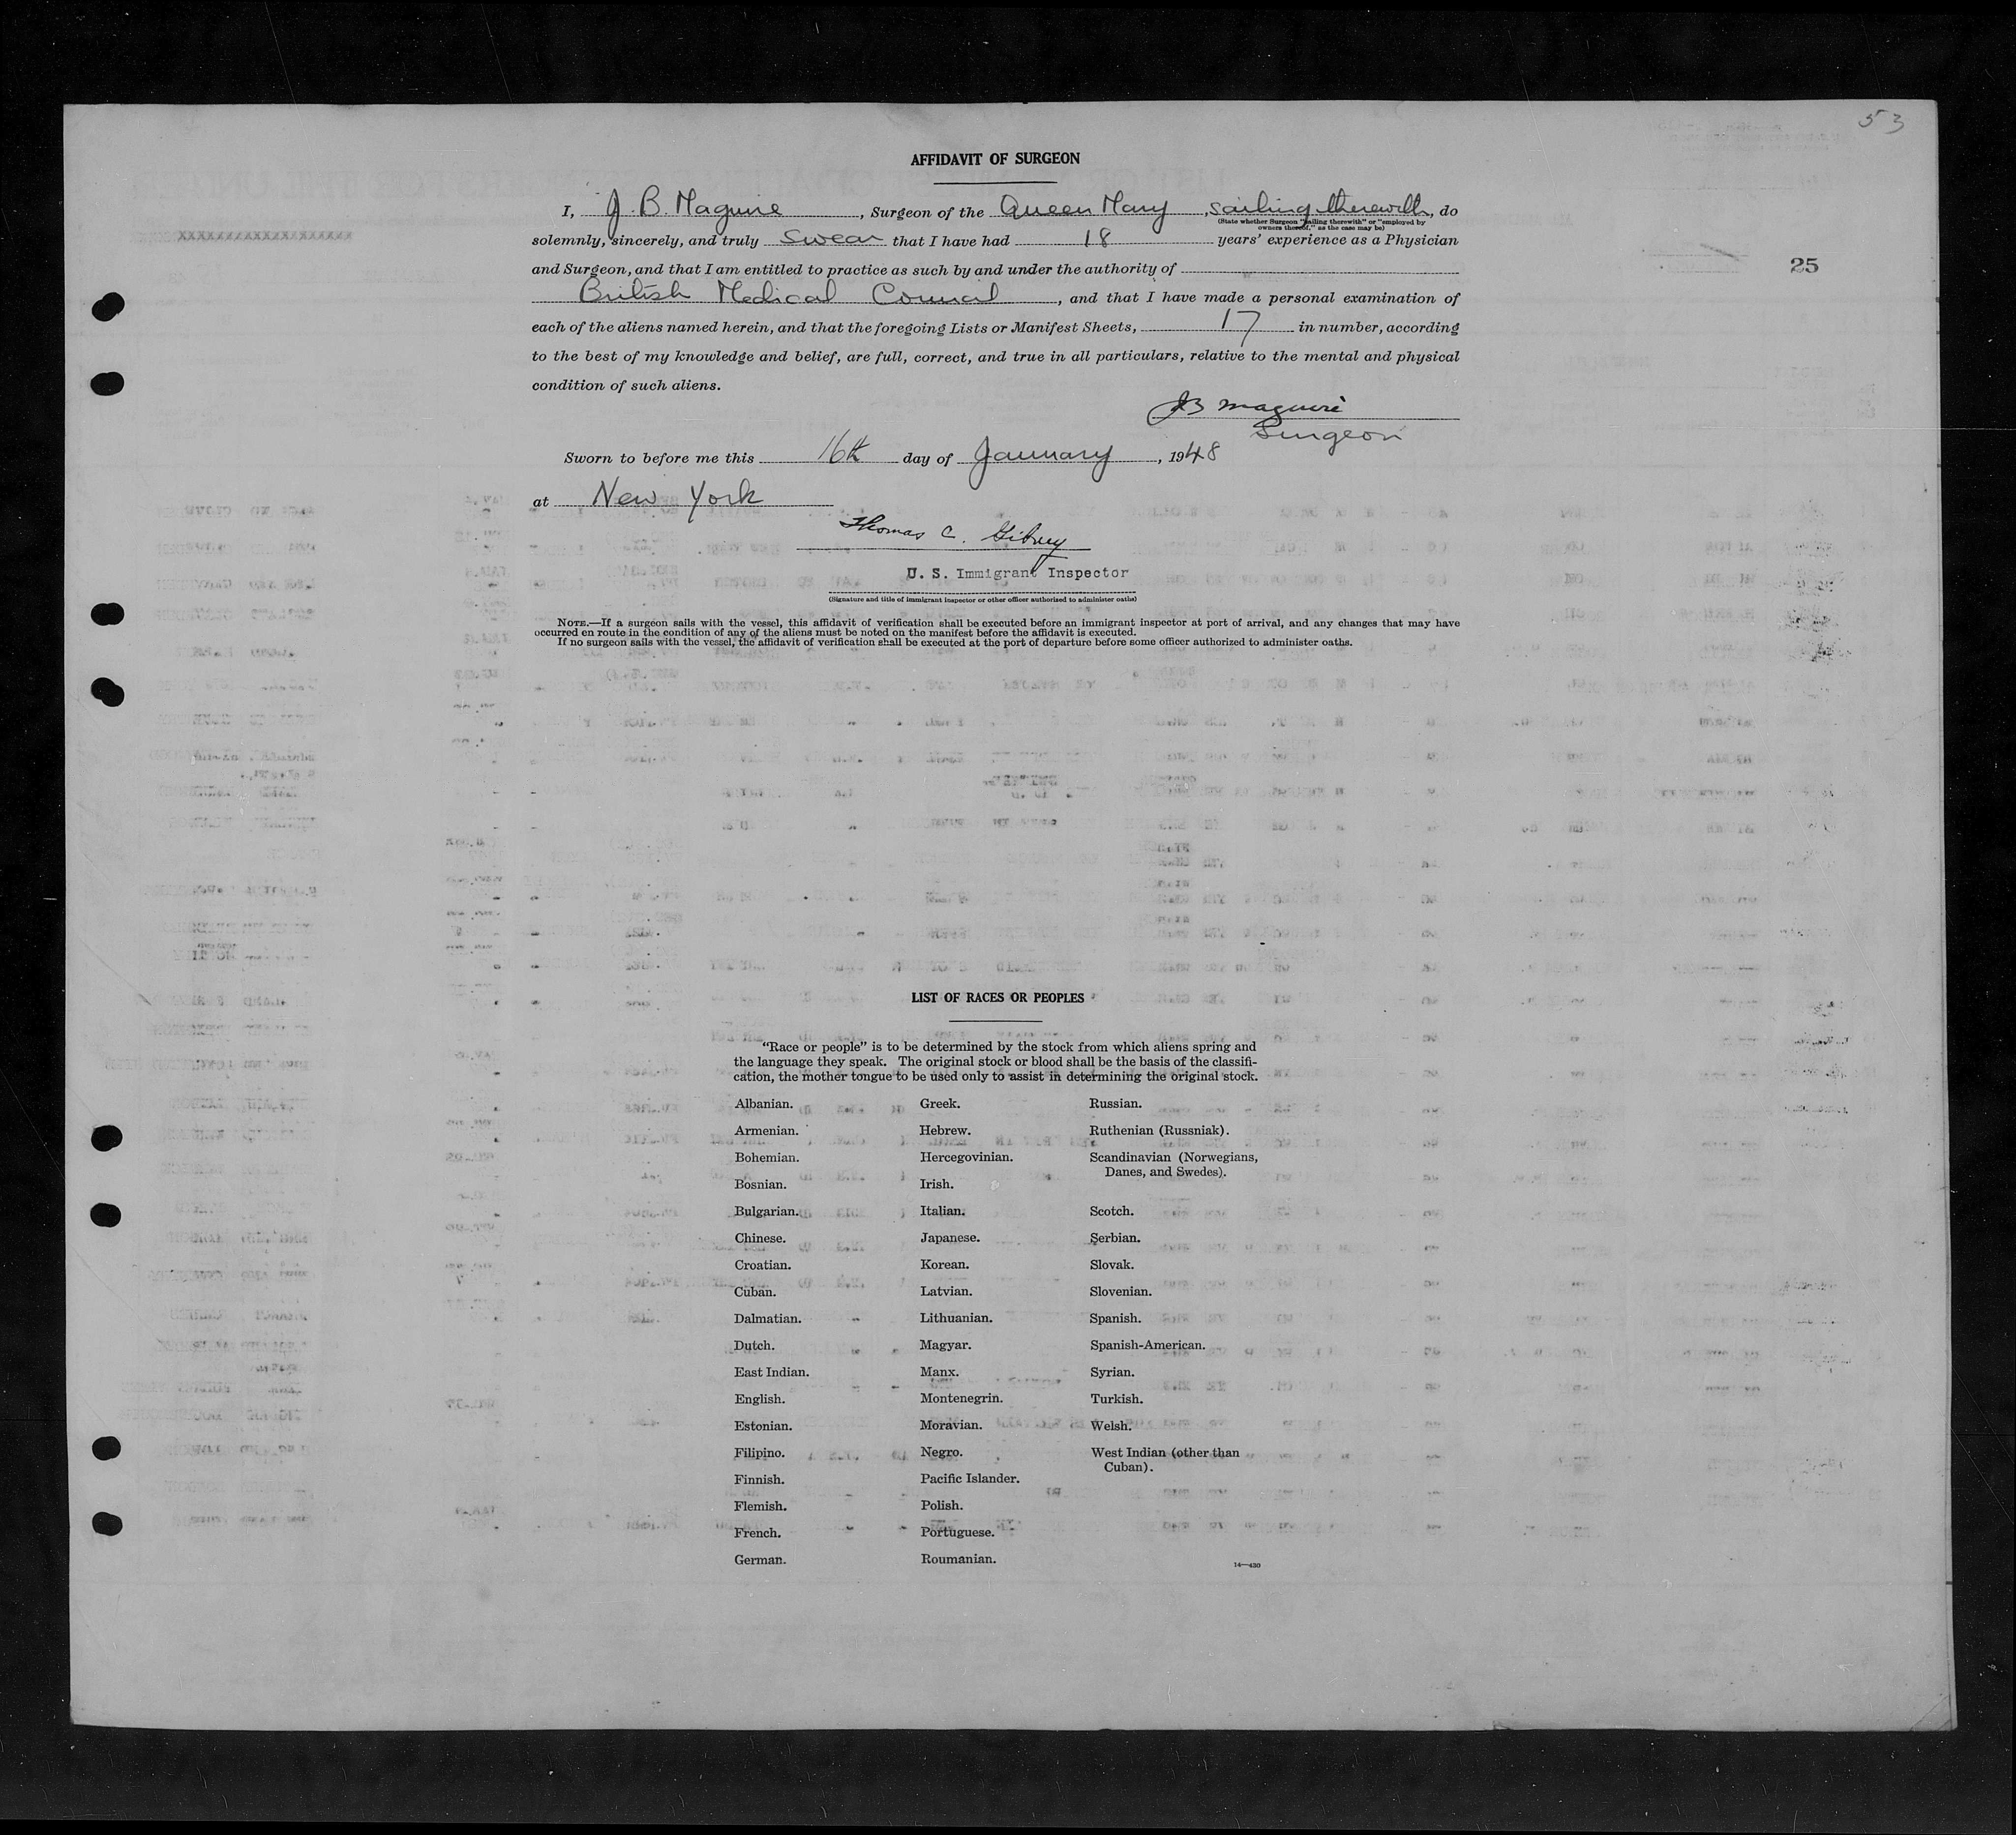 53
AFFIDAVIT OF SURGEON
I, J. B. Maguire, Surgeon of the Queen Mary, sailing therewith, do
(State whether Surgeon "sailing therewith" or "employed by
owners thereof," as the case may be)
solemnly, sincerely, and truly swear that I have had 18 years' experience as a Physician
and Surgeon, and that I am entitled to practice as such by and under the authority of
25
British Medical Council, and that I have made a personal examination of
each of the aliens named herein, and that the foregoing Lists or Manifest Sheets, 17 in number, according
to the best of my knowledge and belief, are full, correct, and true in all particulars, relative to the mental and physical
condition of such aliens.
JB Maguire
Surgeon
Sworn to before me this 16th day of January, 1948
at New York
Thomas C. Gibney
U. S. Immigrant Inspector
(Signature and title of immigrant inspector or other officer authorized to administer oaths)
NOTE.—If a surgeon sails with the vessel, this affidavit of verification shall be executed before an immigrant inspector at port of arrival, and any changes that may have
occurred en route in the condition of any of the aliens must be noted on the manifest before the affidavit is executed.
If no surgeon sails with the vessel, the affidavit of verification shall be executed at the port of departure before some officer authorized to administer oaths.
LIST OF RACES OR PEOPLES
"Race or people" is to be determined by the stock from which aliens spring and
the language they speak. The original stock or blood shall be the basis of the classifi-
cation, the mother tongue to be used only to assist in determining the original stock.
Albanian.
Armenian.
Bohemian.
Bosnian.
Bulgarian.
Chinese.
Croatian.
Cuban.
Dalmatian.
Dutch.
East Indian.
English.
Estonian.
Filipino.
Finnish.
Flemish.
French.
German.
Greek.
Hebrew.
Hercegovinian.
Irish.
Italian.
Japanese.
Korean.
Latvian.
Lithuanian.
Magyar.
Manx.
Montenegrin.
Moravian.
Negro.
Pacific Islander.
Polish.
Portuguese.
Roumanian.
Russian.
Ruthenian (Russniak).
Scandinavian (Norwegians,
Danes, and Swedes).
Scotch.
Serbian.
Slovak.
Slovenian.
Spanish.
Spanish-American.
Syrian.
Turkish.
Welsh.
West Indian (other than
Cuban).
14—430